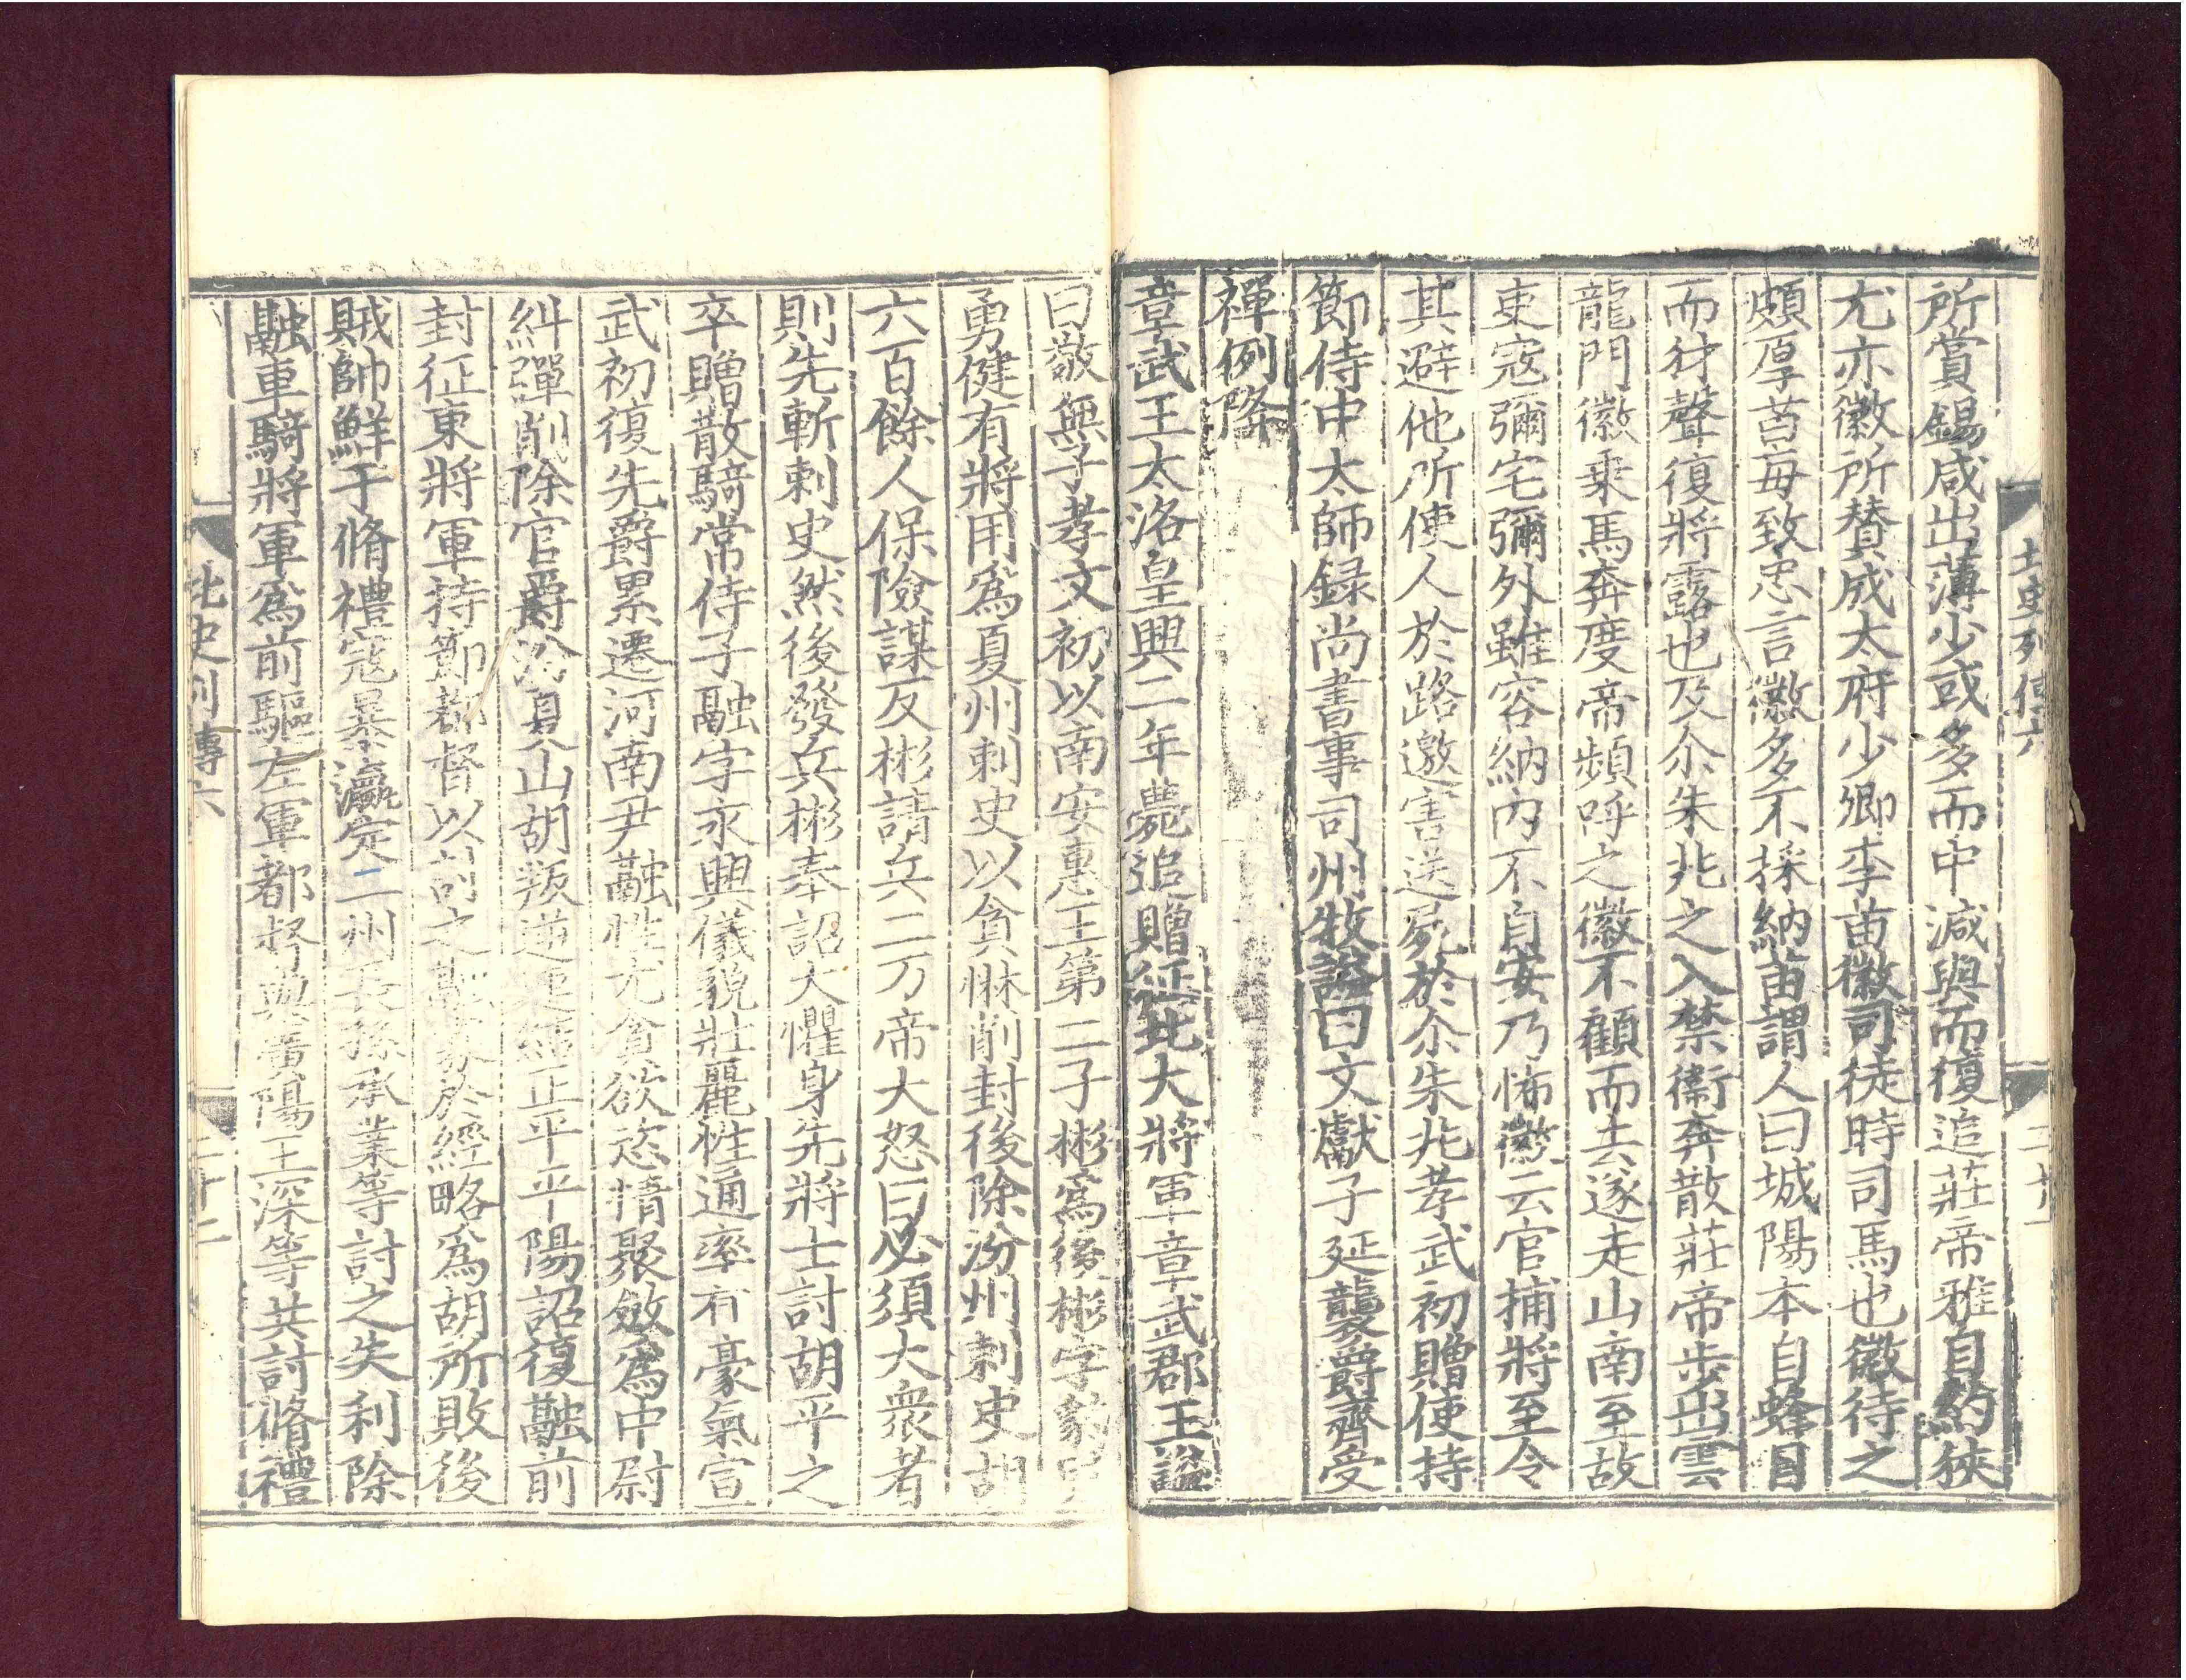 北史列傳六
二十一
所賞錫咸出薄少或多而中減與而復追莊帝雅自約狹
尤亦徽所贊成太府少卿李苗徽司徒時司馬也徽待之
頗厚苗每致忠言徽多不採納苗謂人曰城陽本自蜂目
而豺聲復將露也及尒朱兆之入禁衞奔散莊帝步出雲
龍門徽乘馬奔度帝頻呼之徽不顧而去遂走山南至故
吏寇彌宅彌外雖容納內不自安乃怖徽云官捕將至令
其避他所使人於路邀害送屍於尒朱兆孝武初贈使持
節侍中太師録尚書事司州牧謚曰文獻子延襲爵齊受
禪例降
章武王太洛皇興二年薨追贈征北大將軍章武郡王謚
曰敬無子孝文初以南安惠王第二子彬爲後彬字豹兒
勇健有將用爲夏州刺史以貪惏削封後除汾州刺史胡
六百餘人保險謀反彬請兵二万帝大怒曰必須大衆者
則先斬刺史然後發兵彬奉詔大懼身先將士討胡平之
卒贈散騎常侍子融字永興儀貌壯麗性通率有豪氣宣
武初復先爵累遷河南尹融性尤貪欲恣情聚斂爲中尉
糾彈削除官爵汾夏山胡叛逆連結正平平陽詔復融前
封征東將軍持節都督以討之融寡於經略爲胡所敗後
賊帥鮮于脩禮寇暴瀛定二州長孫承業等討之失利除
融車騎將軍爲前驅左軍都督與廣陽王深等共討脩禮
北史列傳六
二十二